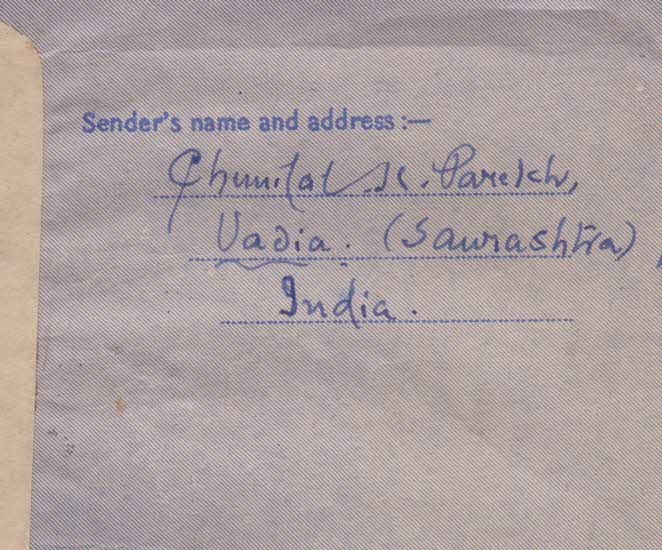 Sender's name and address :—
Chunilal K. Parekh,
Vadia. (Saurashtra),
India.